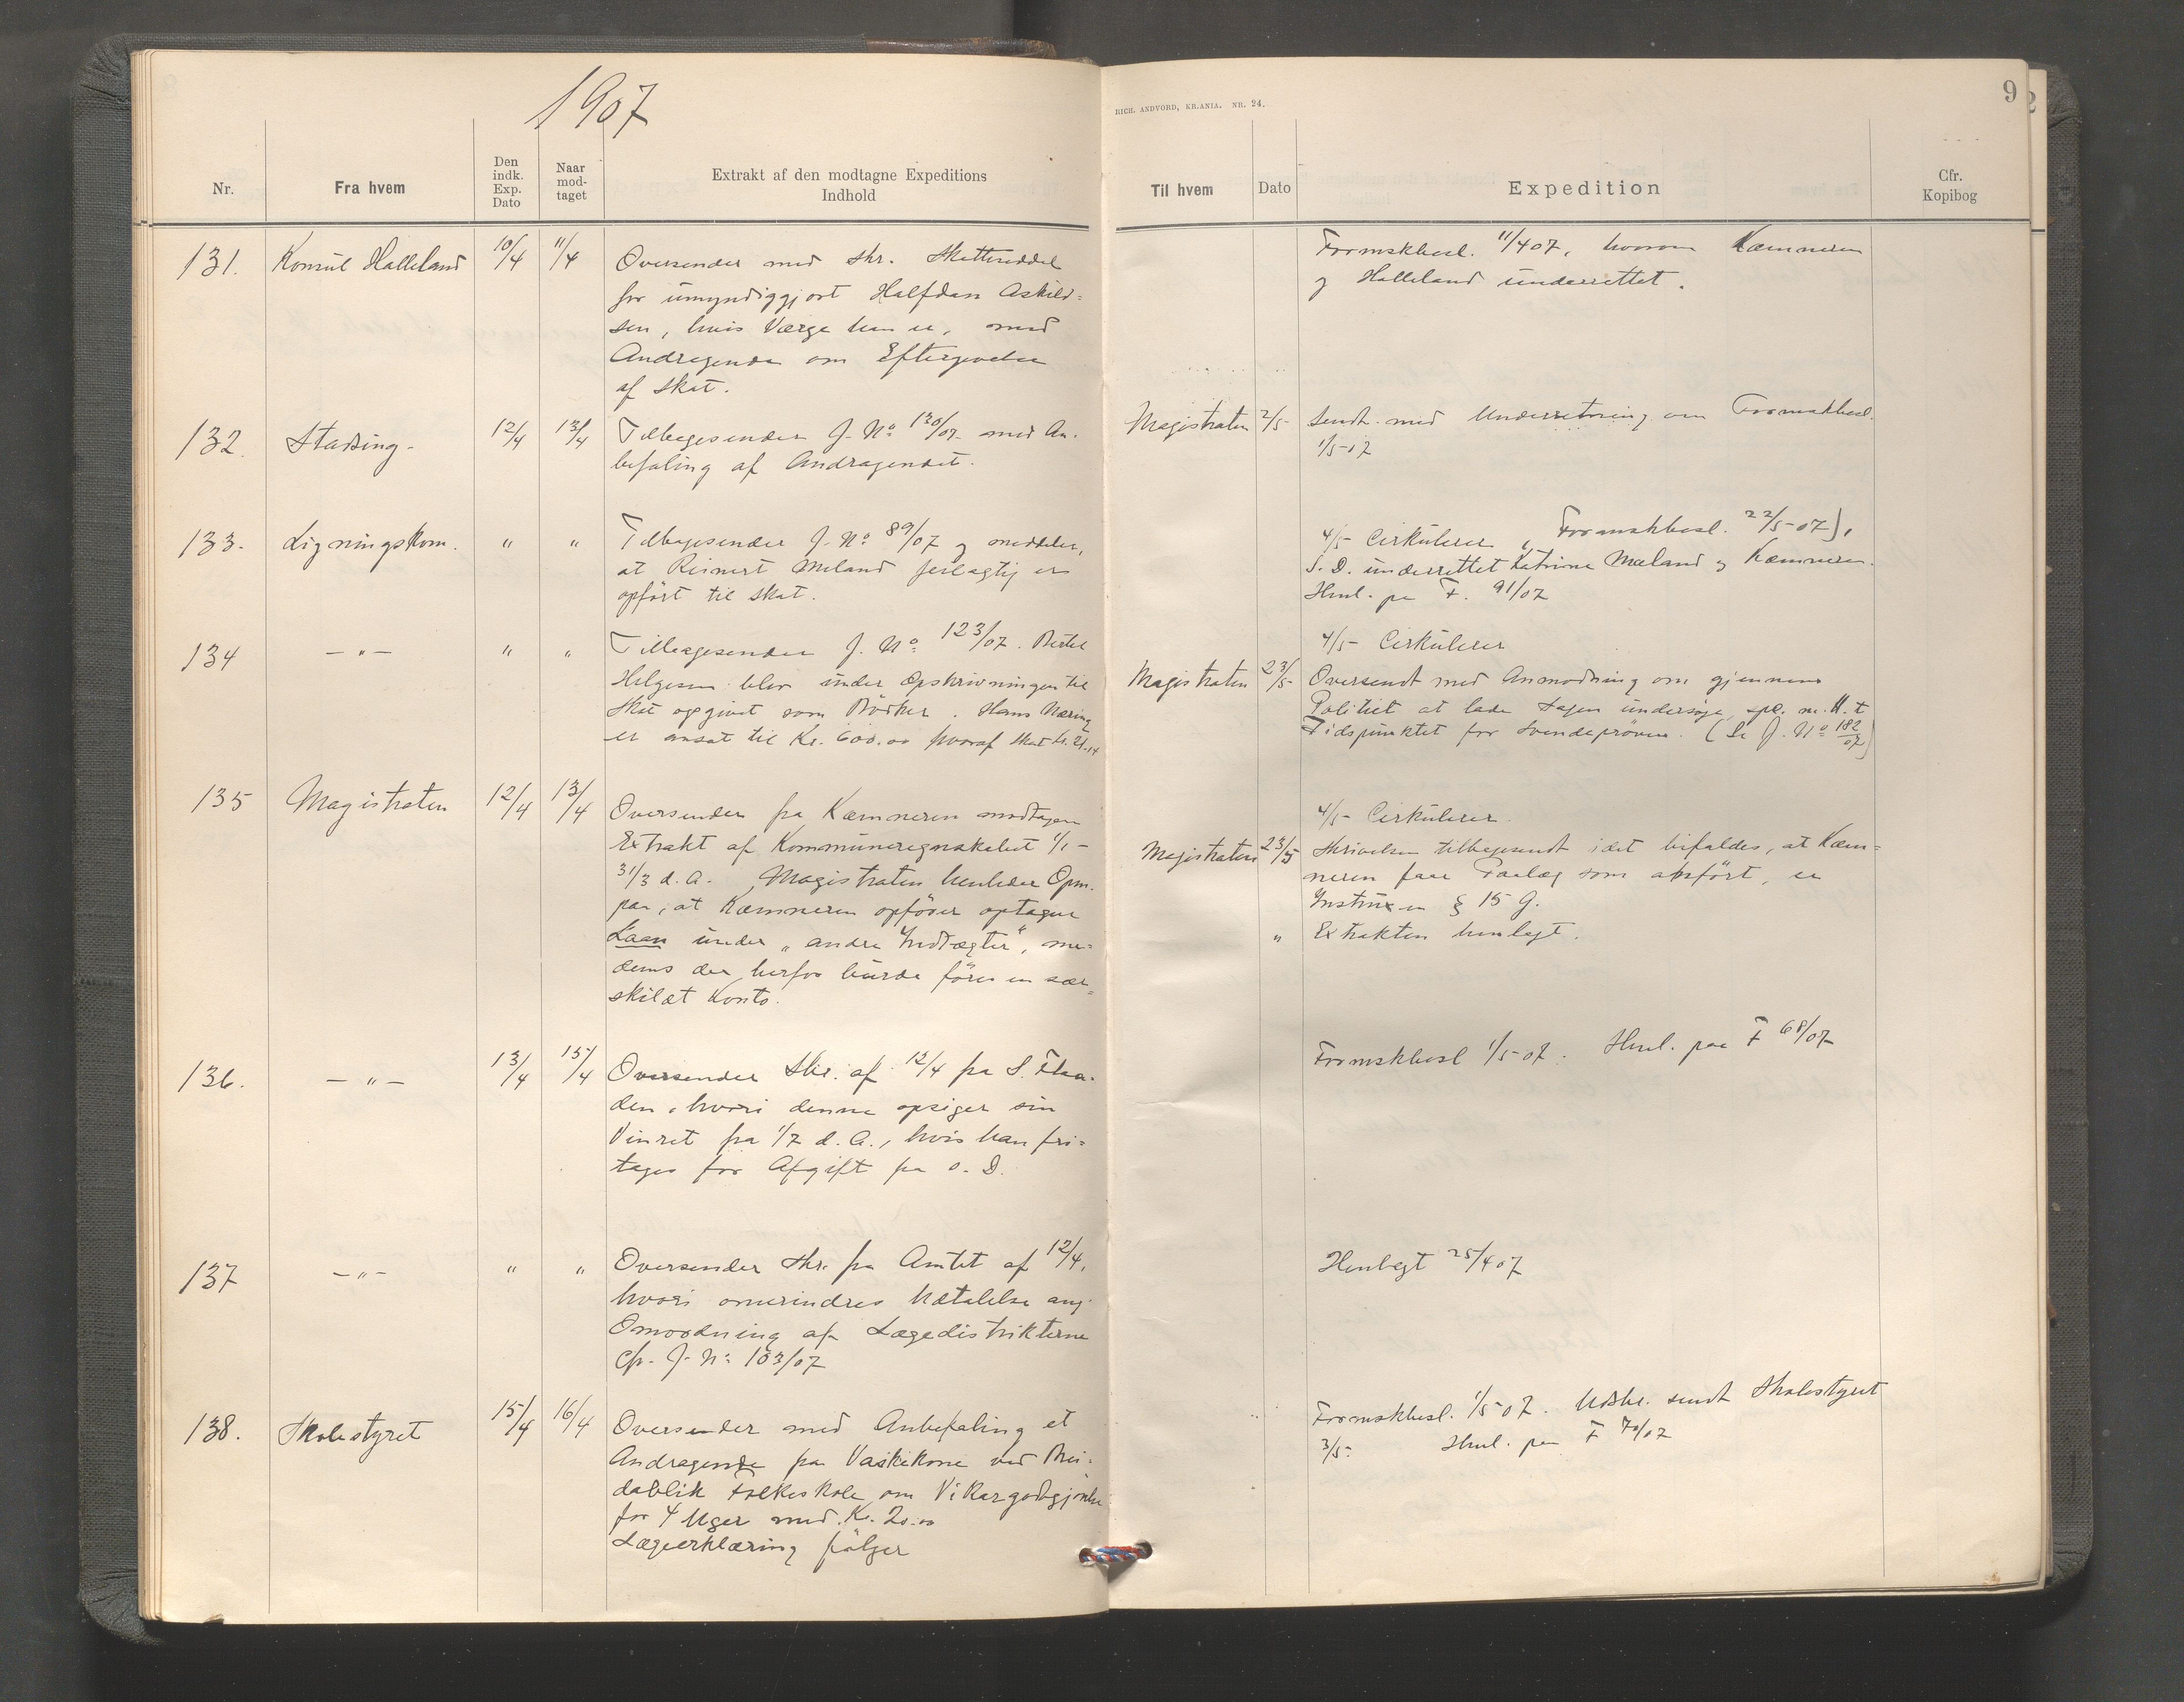 1907
Nr.
Fra hvem
Den indk. Exp. Dato
Naar mod- taget
Extrakt af den modtagne Expeditions Indhold
131.
Konsul Halleland
10/4
11/4
Oversender med skr. Skatteseddel
for umyndiggjort Halfdan Askild=
sen, hvis Værge han er, med
Andragende om Eftergivelse
af Skat.
132.
12/4
13/4
Tilbagesender J. No 120/07 med An-
befaling af Andragendet.
133.
Ligningskom.
"
"
Tilbagesender J. No 89/07 og meddeler,
at Reinert Meland feilagtig er
opført til Skat.
134
— " —
"
"
Tilbagesender J. No 123/07. Bertel
Helgesen blev under Opskrivningen til
Skat opgivet som Bödker. Hans Næring
er ansat til Kr. 600.00 hvoraf Skat kr. 21.14
135
Magistraten
12/4
13/4
Oversender fra Kæmneren modtagen
Extrakt af Kommuneregnskabet 1/1 -
31/3 d. A. Magistraten henleder Opm.
paa, at Kæmneren opfører optagne
Laan under „andre Indtægter", me=
dens der herfor burde føres en sær=
skilt Konto.
136.
— " —
13/4
15/4
Oversender Skr. af 12/4 fra S. Flaa-
den, hvori denne opsiger sin
Vinret fra 1/7 d. A., hvis han fri=
tages for Afgift fra s. D.
137
— " —
"
"
Oversender Skr. fra Amtet af 12/4,
hvori omerindres Udtalelse ang.
Omordning af Lægedistrikterne
Cfr. J. No 103/07
138.
Skolestyret
15/4
16/4
Oversender med Anbefaling et
Andragende fra Vaskekone ved Brei-
dablik Folkeskole om Vikargodtgjørelse
for 4 Uger med Kr. 20.00
Lægeerklæring følger
RICH. ANDVORD, KR.ANIA. NR. 24.
9
Til hvem
Dato
Expedition
Cfr. Kopibog
Formskbesl. 11/4 07, hvorom Kæmneren
og Halleland underrettet.
Magistraten
2/5
Sendt med Underretning om Formskbesl.
1/5-07
4/5 Cirkulerer, Formskbesl. 22/5-07),
S. D. underrettet Katrine Mæland og Kæmneren.
Henl. paa F. 91/07
4/5- Cirkulerer
Magistraten
23/5
Oversendt med Anmodning om gjennem
Politiet at lade Sagen undersøge, spec. m. H. t.
Tidspunktet for Svendeprøven. (Se J. No 182/07)
4/5- Cirkulerer.
Magistraten
23/5
Skrivelsen tilbagesendt idet bifaldes, at Kæm=
neren faar Paalæg som anført, cfr
Instruxen § 15 g.
"
Extrakten henlagt.
Formskbesl 1/5-07. Henl. paa F 68/07
Henlagt 25/4 07
Formskbesl. 1/5 07. Udskr. sendt Skolestyret
3/5-
Henl. paa F 70/07